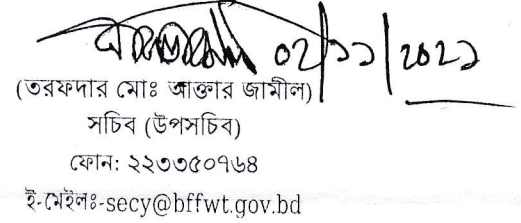 ০২/১১/২০২১
(তরফদার মোঃ আক্তার জামীল)
সচিব (উপসচিব)
ফোন: ২২৩৩৫০৭৬৮
ই-মেইলঃ-secy@bffwt.gov.bd